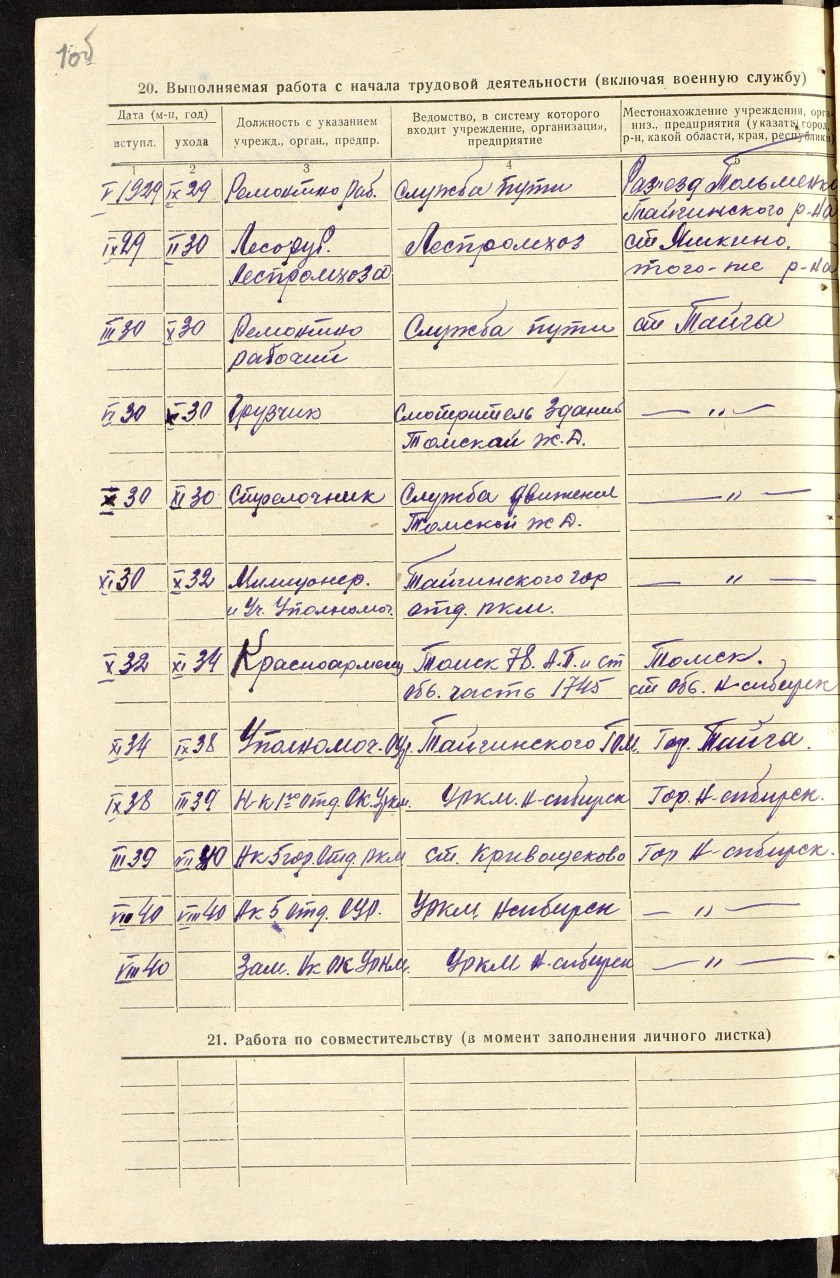 10об
20. Выполняемая работа с начала трудовой деятельности (включая военную службу)
Дата (м-ц, год) Должность с указанием учрежд., орган., предпр. Ведомство, в систему которого входит учреждение, организация, предприятие Местонахождение учреждения, орга-
низ., предприятия (указать город,
р-н, какой области, края, республики)
вступл. ухода
1 2 3 4 5
V 1929 IX 29 Ремонтно раб. Служба пути Разъезд
Тайгинского р-на
IX 29 II 30 Лесоруб. Леспромхоз ст Яшкино.
Леспромхоза того-же р-на
III 30 X 30 Ремонтно Служба пути ст Тайга
рабочий
VI 30 30 Грузчик Смотритель Зданий — „ —
Томской ж.д.
X 30 XI 30 Стрелочник Служба движения — „ —
Томской ж д.
XI 30 X 32 Милиционер. Тайгинского гор — „ —
и Уч. Уполномоч. отд. ркм.
X 32 XI 34 Красноармеец Томск 78. А.П. и ст Томск.
Обь. часть 1745 ст Обь. Н-сибирск
XI 34 IX 38 Уполномоч. ОУР. Тайгинского ГОМ. Гор. Тайга.
IX 38 III 39 Н-к 1го Отд. ОК. Уркм. УРКМ. Н-сибирск Гор. Н-сибирск.
III 39 VII 40 Нк 5 гор. Отд. ркм ст. Кривощеково Гор Н-сибирск.
VIII 40 VIII 40 Нк 5 Отд. ОУР. Уркм. Нсибирск — „ —
VIII 40 Зам. Нк ОК Уркм. УРКМ Н-сибирск — „ —
21. Работа по совместительству (в момент заполнения личного листка)